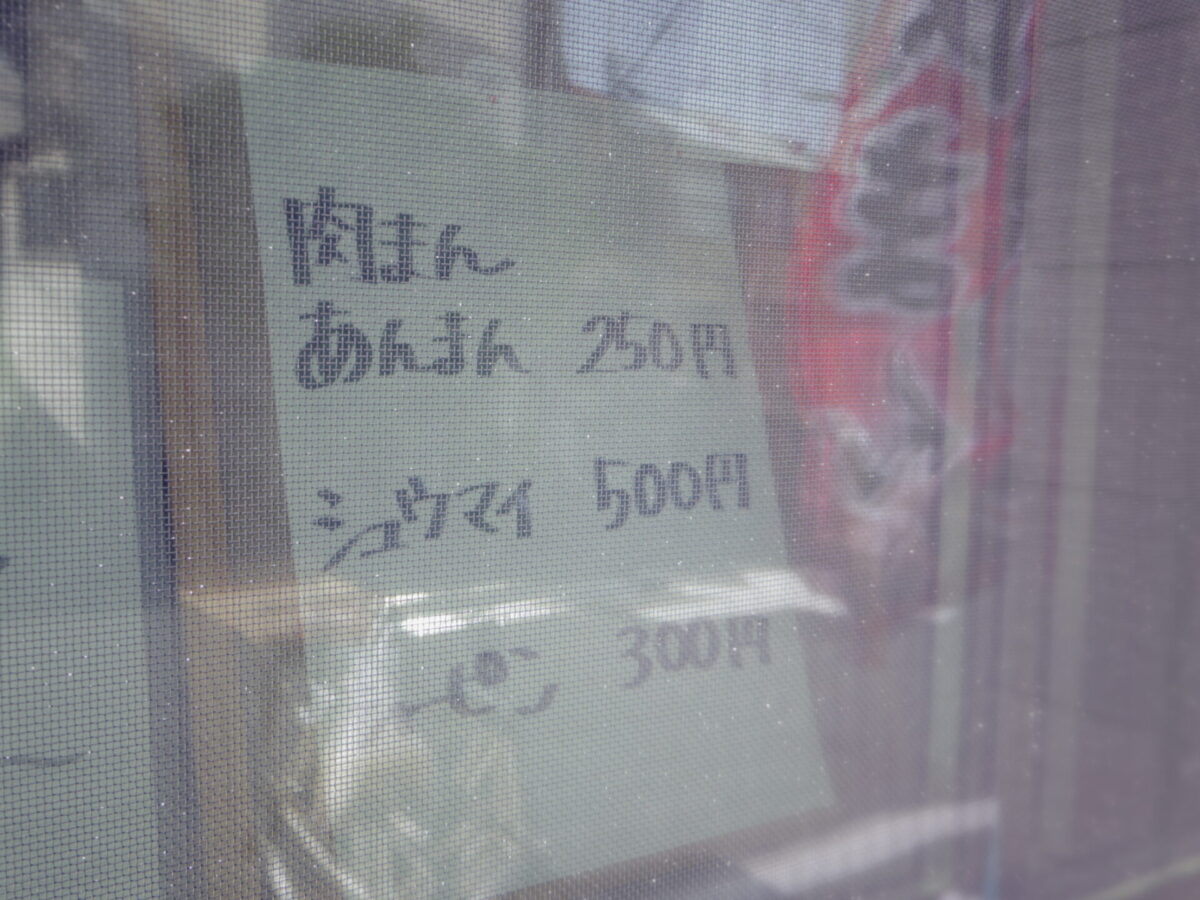 肉まん
あんまん 250円
シュウマイ 500円
ーピン 300円